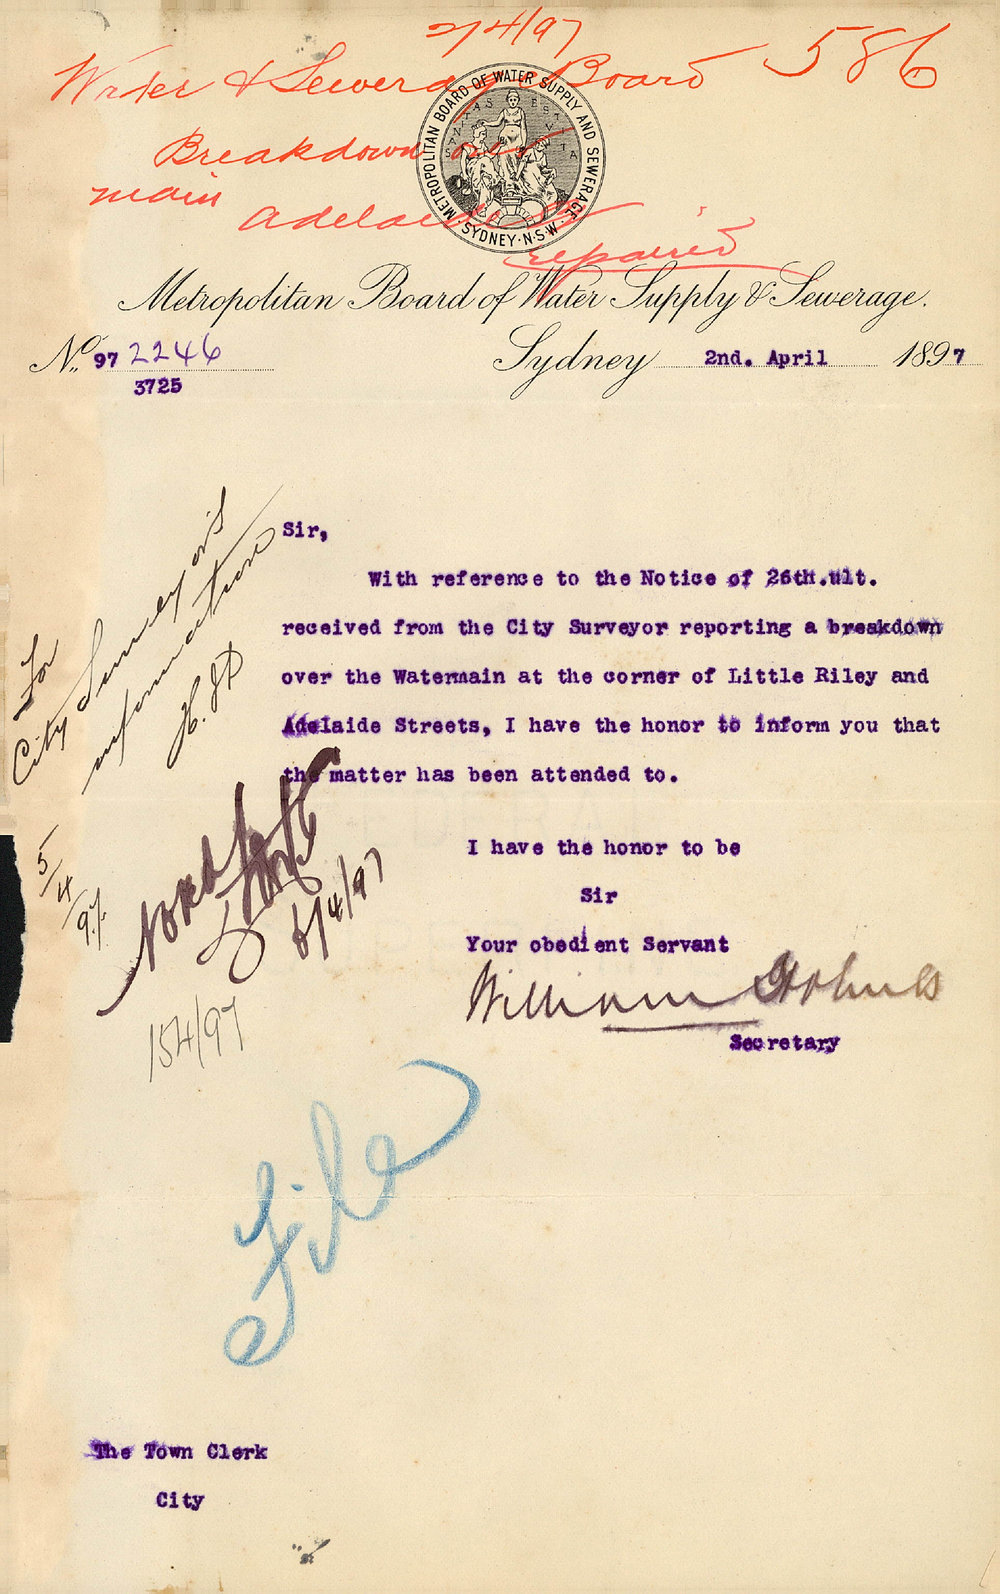 2/4/97
Water & Sewerage Board 586
Breakdown
main
Adelaide St
repaired
METROPOLITAN BOARD OF WATER SUPPLY AND SEWERAGE
SYDNEY·N·S·W·
Metropolitan Board of Water Supply & Sewerage.
No. 97 2246
3725
Sydney 2nd. April 1897
For
City Surveyor's
information
5/4/97.
Sir,
With reference to the Notice of 26th.ult.
received from the City Surveyor reporting a breakdown
over the Watermain at the corner of Little Riley and
Adelaide Streets, I have the honor to inform you that
the matter has been attended to.
Noted
6/4/97
154/97
I have the honor to be
Sir
Your obedient Servant
William Holmes
Secretary
File
The Town Clerk
City